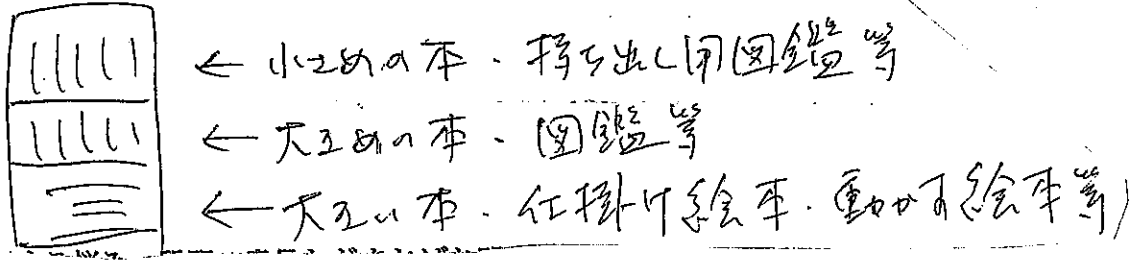 ← 小さめの本・持ち出し用図鑑等
← 大きめの本・図鑑等
← 大きい本・仕掛け絵本・動かす絵本等